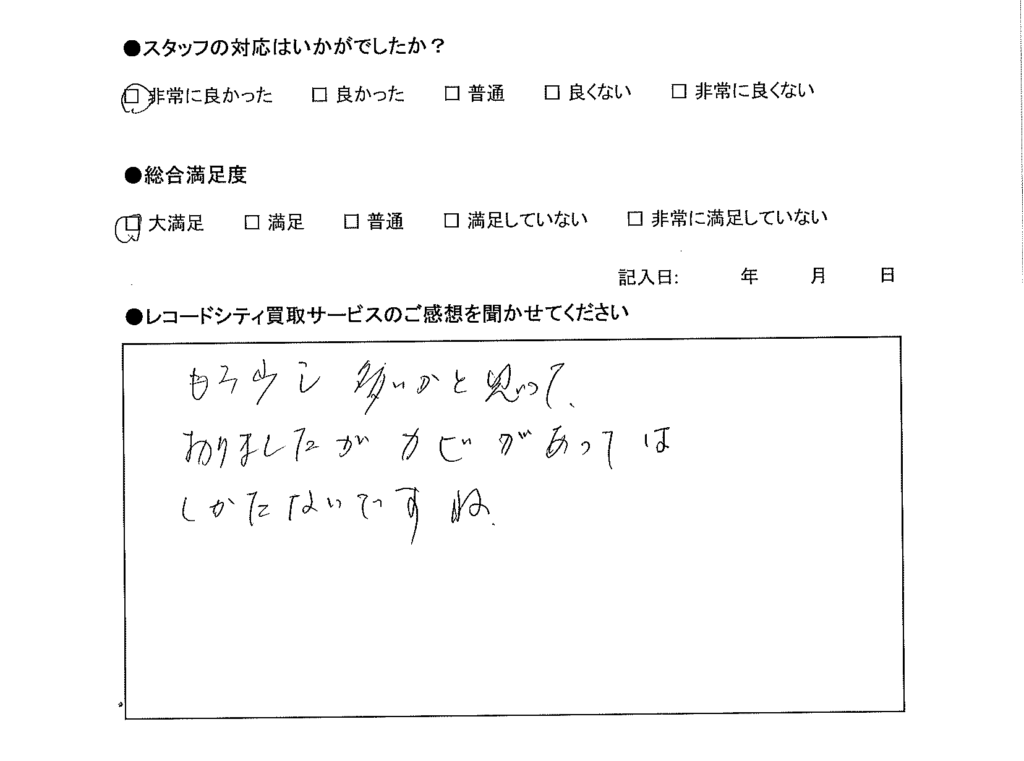 ●スタッフの対応はいかがでしたか？
□ 非常に良かった □ 良かった □ 普通 □ 良くない □ 非常に良くない
●総合満足度
□ 大満足 □ 満足 □ 普通 □ 満足していない □ 非常に満足していない
記入日: 年 月 日
●レコードシティ買取サービスのご感想を聞かせてください
もう少し 多いかと思って
おりましたが カビがあっては
しかたないですね.